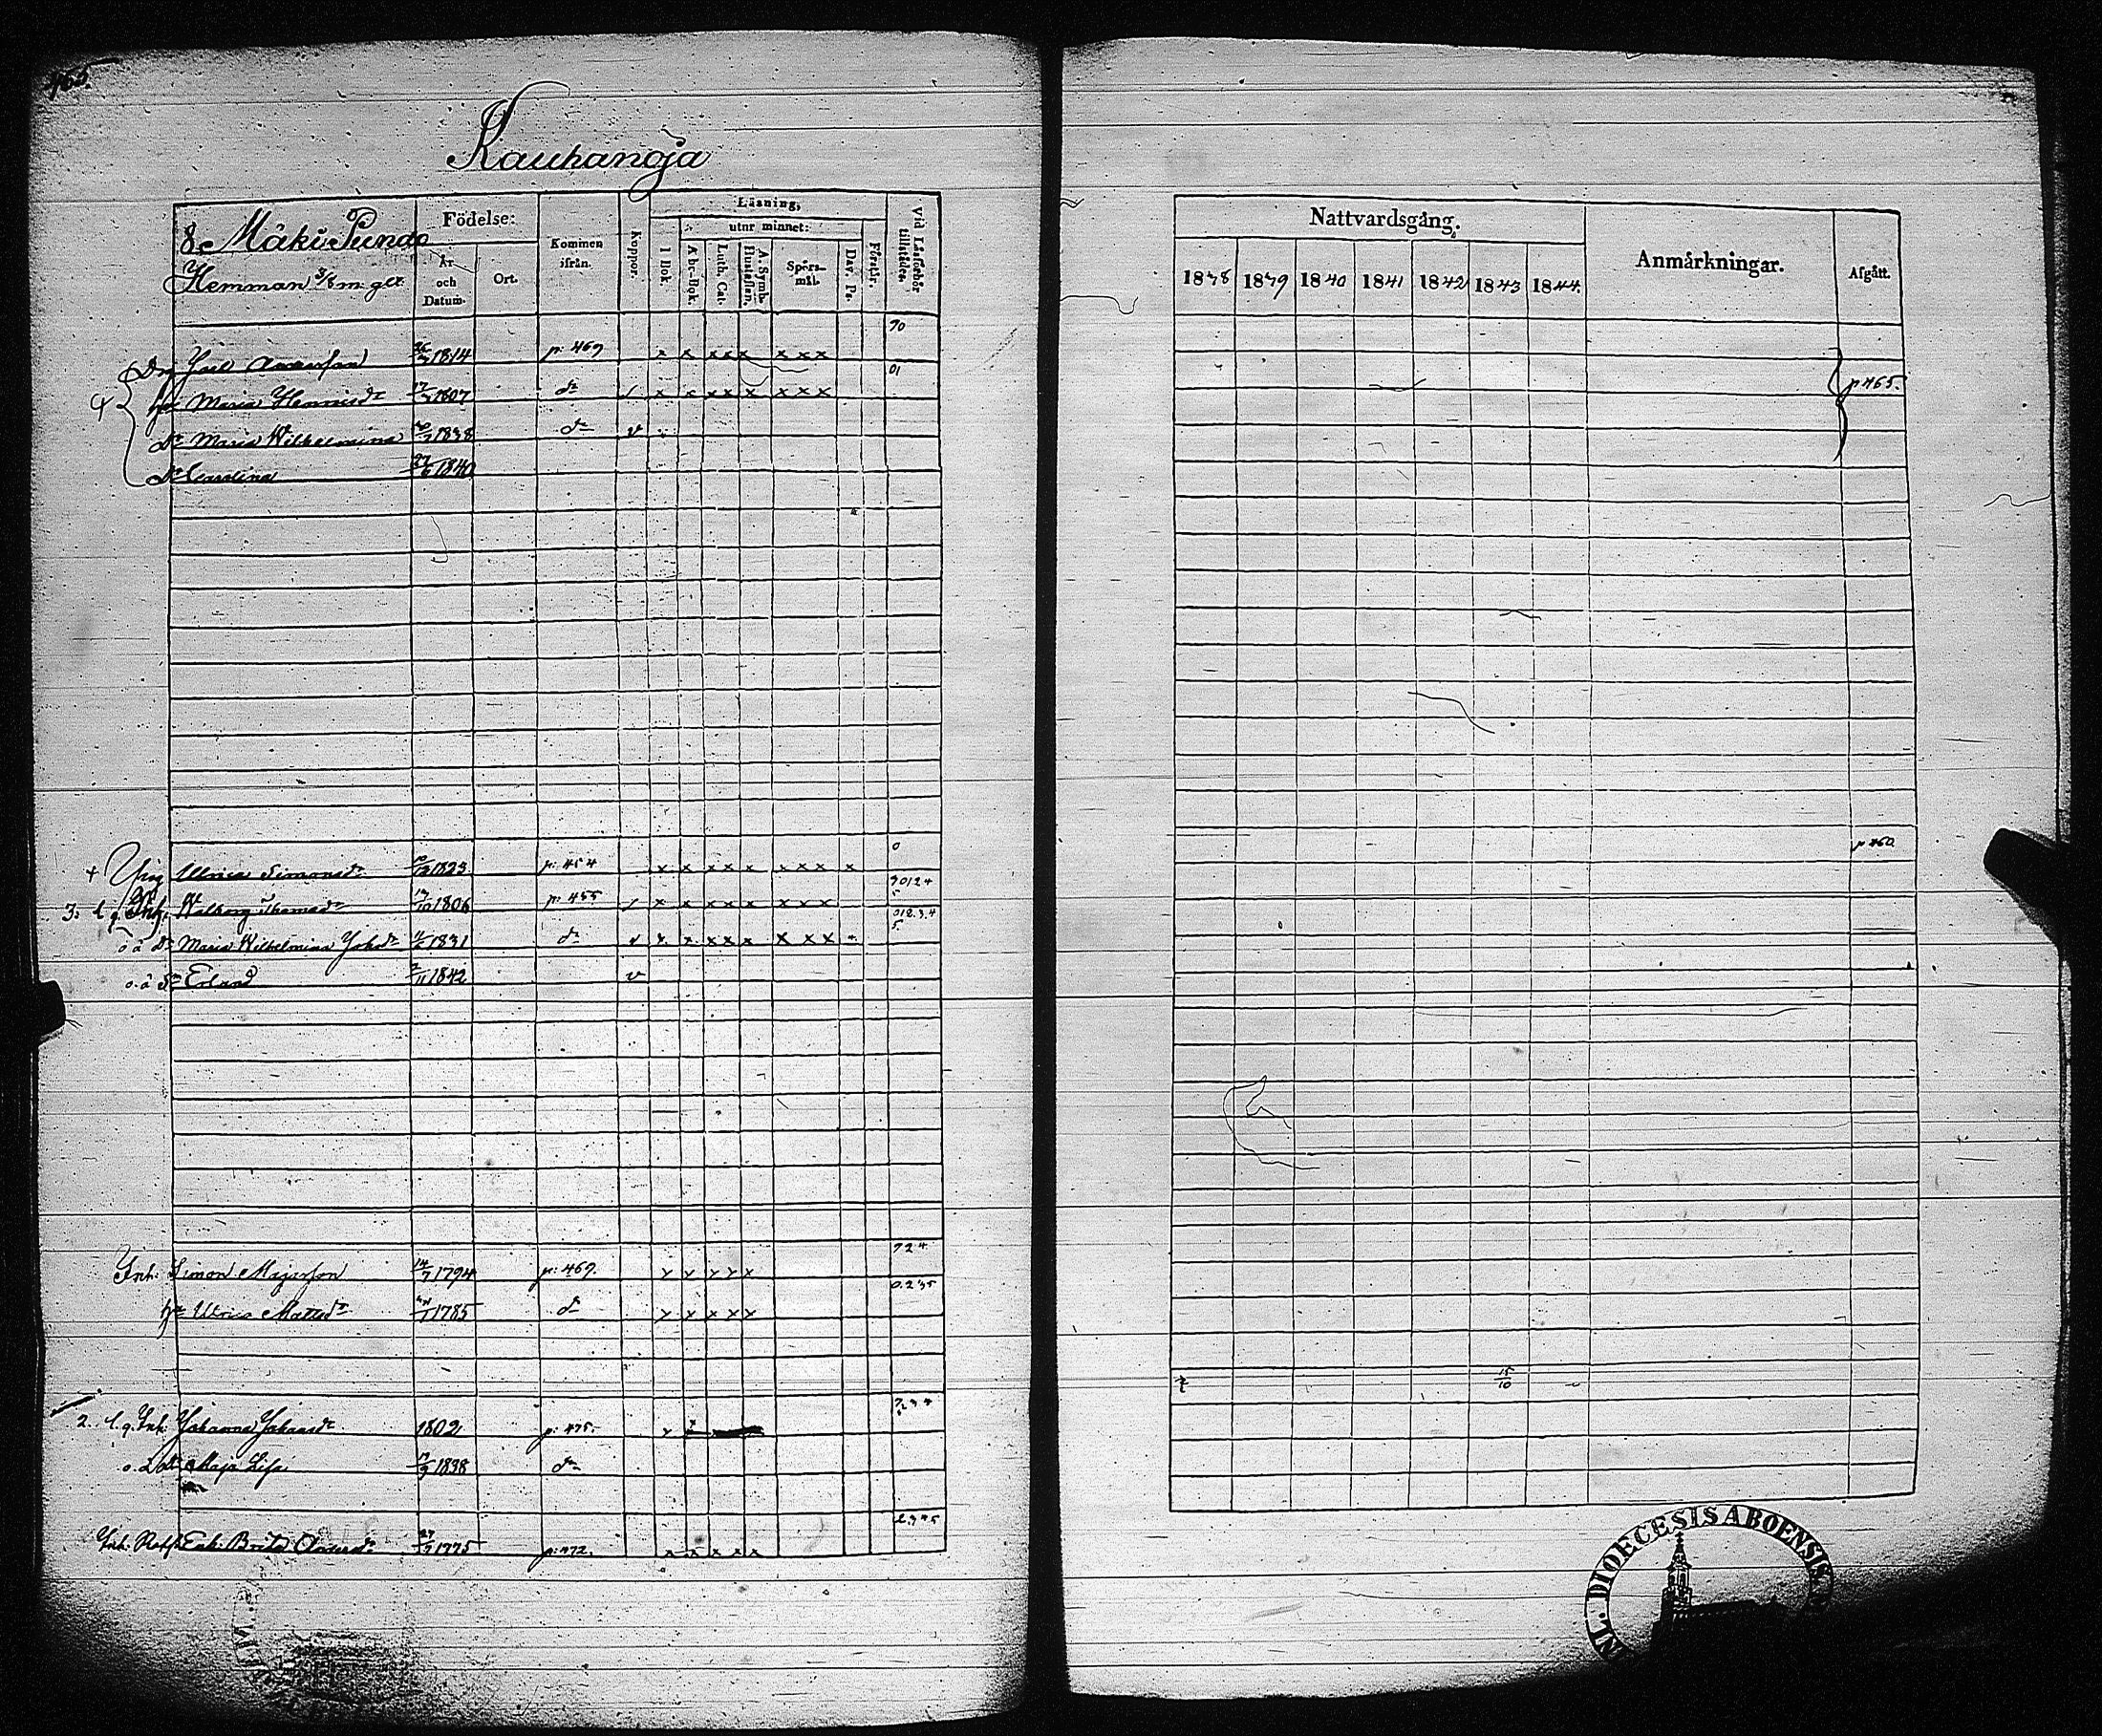 465.
Kauhanoja
8. Mäki Punda
Hemman 3/8 m: glt.
Födelse:
År och Datum.
Ort.
Kommen ifrån.
Koppor.
Läsning,
utur minnet:
I Bok.
Abc-Bok.
Luth. Cat.
A. Symb. Hustaflan.
Spörs-mål.
Dav. Ps.
Förstår.
Vid Läseförhör tillstädes.
Joel Andersson 1814 p: 469 x x x x x x x x 90
4 hu Maria Henricsdr 17 1807 do / x x x x x x x x 01
dr Maria Wilhelmina 1838 do v
dr Carolina 27/6 1840
+ Pig Ulrica Simonsdr 1823 p: 454 x x x x x x x x x 0
3: l. q. Inh. Walborg Thomasdr 1806 p: 455 / x x x x x x x x 9012 4 5
o ä dr Maria Wilhelmina Johsdr 1831 do v x x x x x x x x 012.3.4 5
o. ä Sn Erland 2/11 1842 v
Inh: Simon Majorsson 14/7 1794 p: 469. x x x x x 924
hu Ulrica Mattsdr 1785 do x x x x x 0.2 35
2. l. q. Inh. Johanna Johansdr 1802 p: 475. x
o. ä dr Maja Lisa 1838 do
Inh. Rotf. Enk. Brita Andersdr 27 1775 p: 472. x x x x x
Nattvardsgång.
1838 1839 1840 1841 1842 1843 1844.
Anmärkningar.
Afgått.
p 465.
p 460
15/10
DIOECESIS ABOENSIS